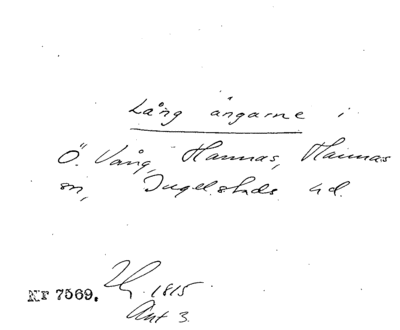 Lång ängarne i
Ö. Vång, Hannas, Hannas
sn, Ingelstads hd.
Nr 7569.
1815
Ant 3.